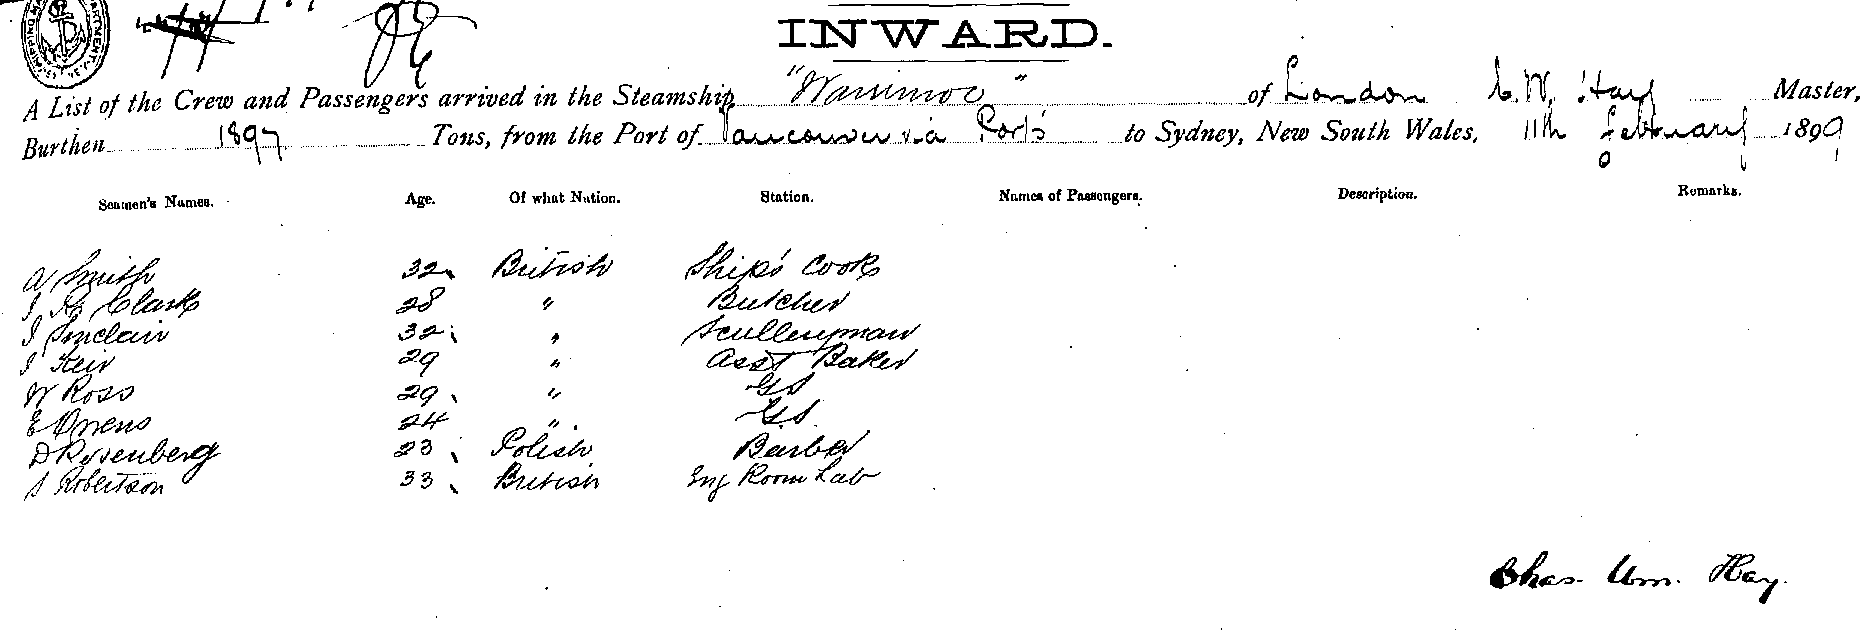 INWARD.
A List of the Crew and Passengers arrived in the Steamship "Warrimoo" of London C. W. Hay Master,
Burthen 1897 Tons, from the Port of Vancouver via Ports to Sydney, New South Wales, 11th February 1899
Seamen's Names. Age. Of what Nation. Station. Names of Passengers. Description. Remarks.
Smith 32 British Ship's Cook
Clark 28 " Butcher
J Sinclair 32 " Sculleryman
J Keir 29 " Asst Baker
W Ross 29 " GS
E Owens 24 " GS
D Rosenberg 23 Polish Barber
J Robertson 33 British Eng Room Lab
Chas. Wm. Hay.